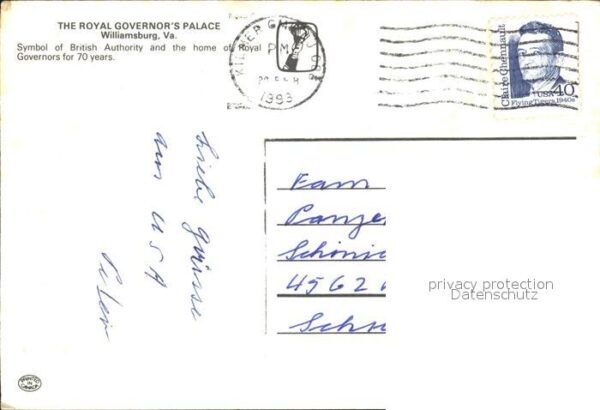 THE ROYAL GOVERNOR'S PALACE
Williamsburg, Va.
Symbol of British Authority and the home of Royal
Governors for 70 years.
PM
1993
Claire Chennault
40
USA
Flying Tigers, 1940s
Liebe Grüsse
aus USA
Peter
Fam
Panze
Schönic
4562
Schw
privacy protection
Datenschutz
PRINTED
IN
CANADA